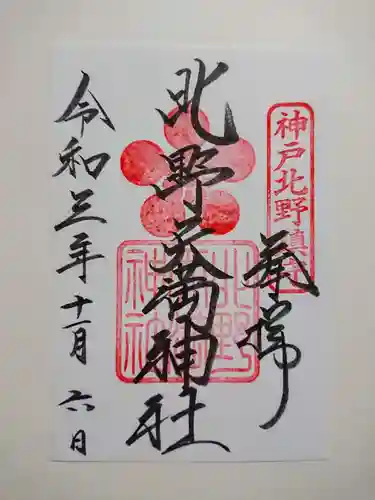 神戸北野鎮守
奉拝
北野天満神社
北野天満神社
令和三年十一月六日